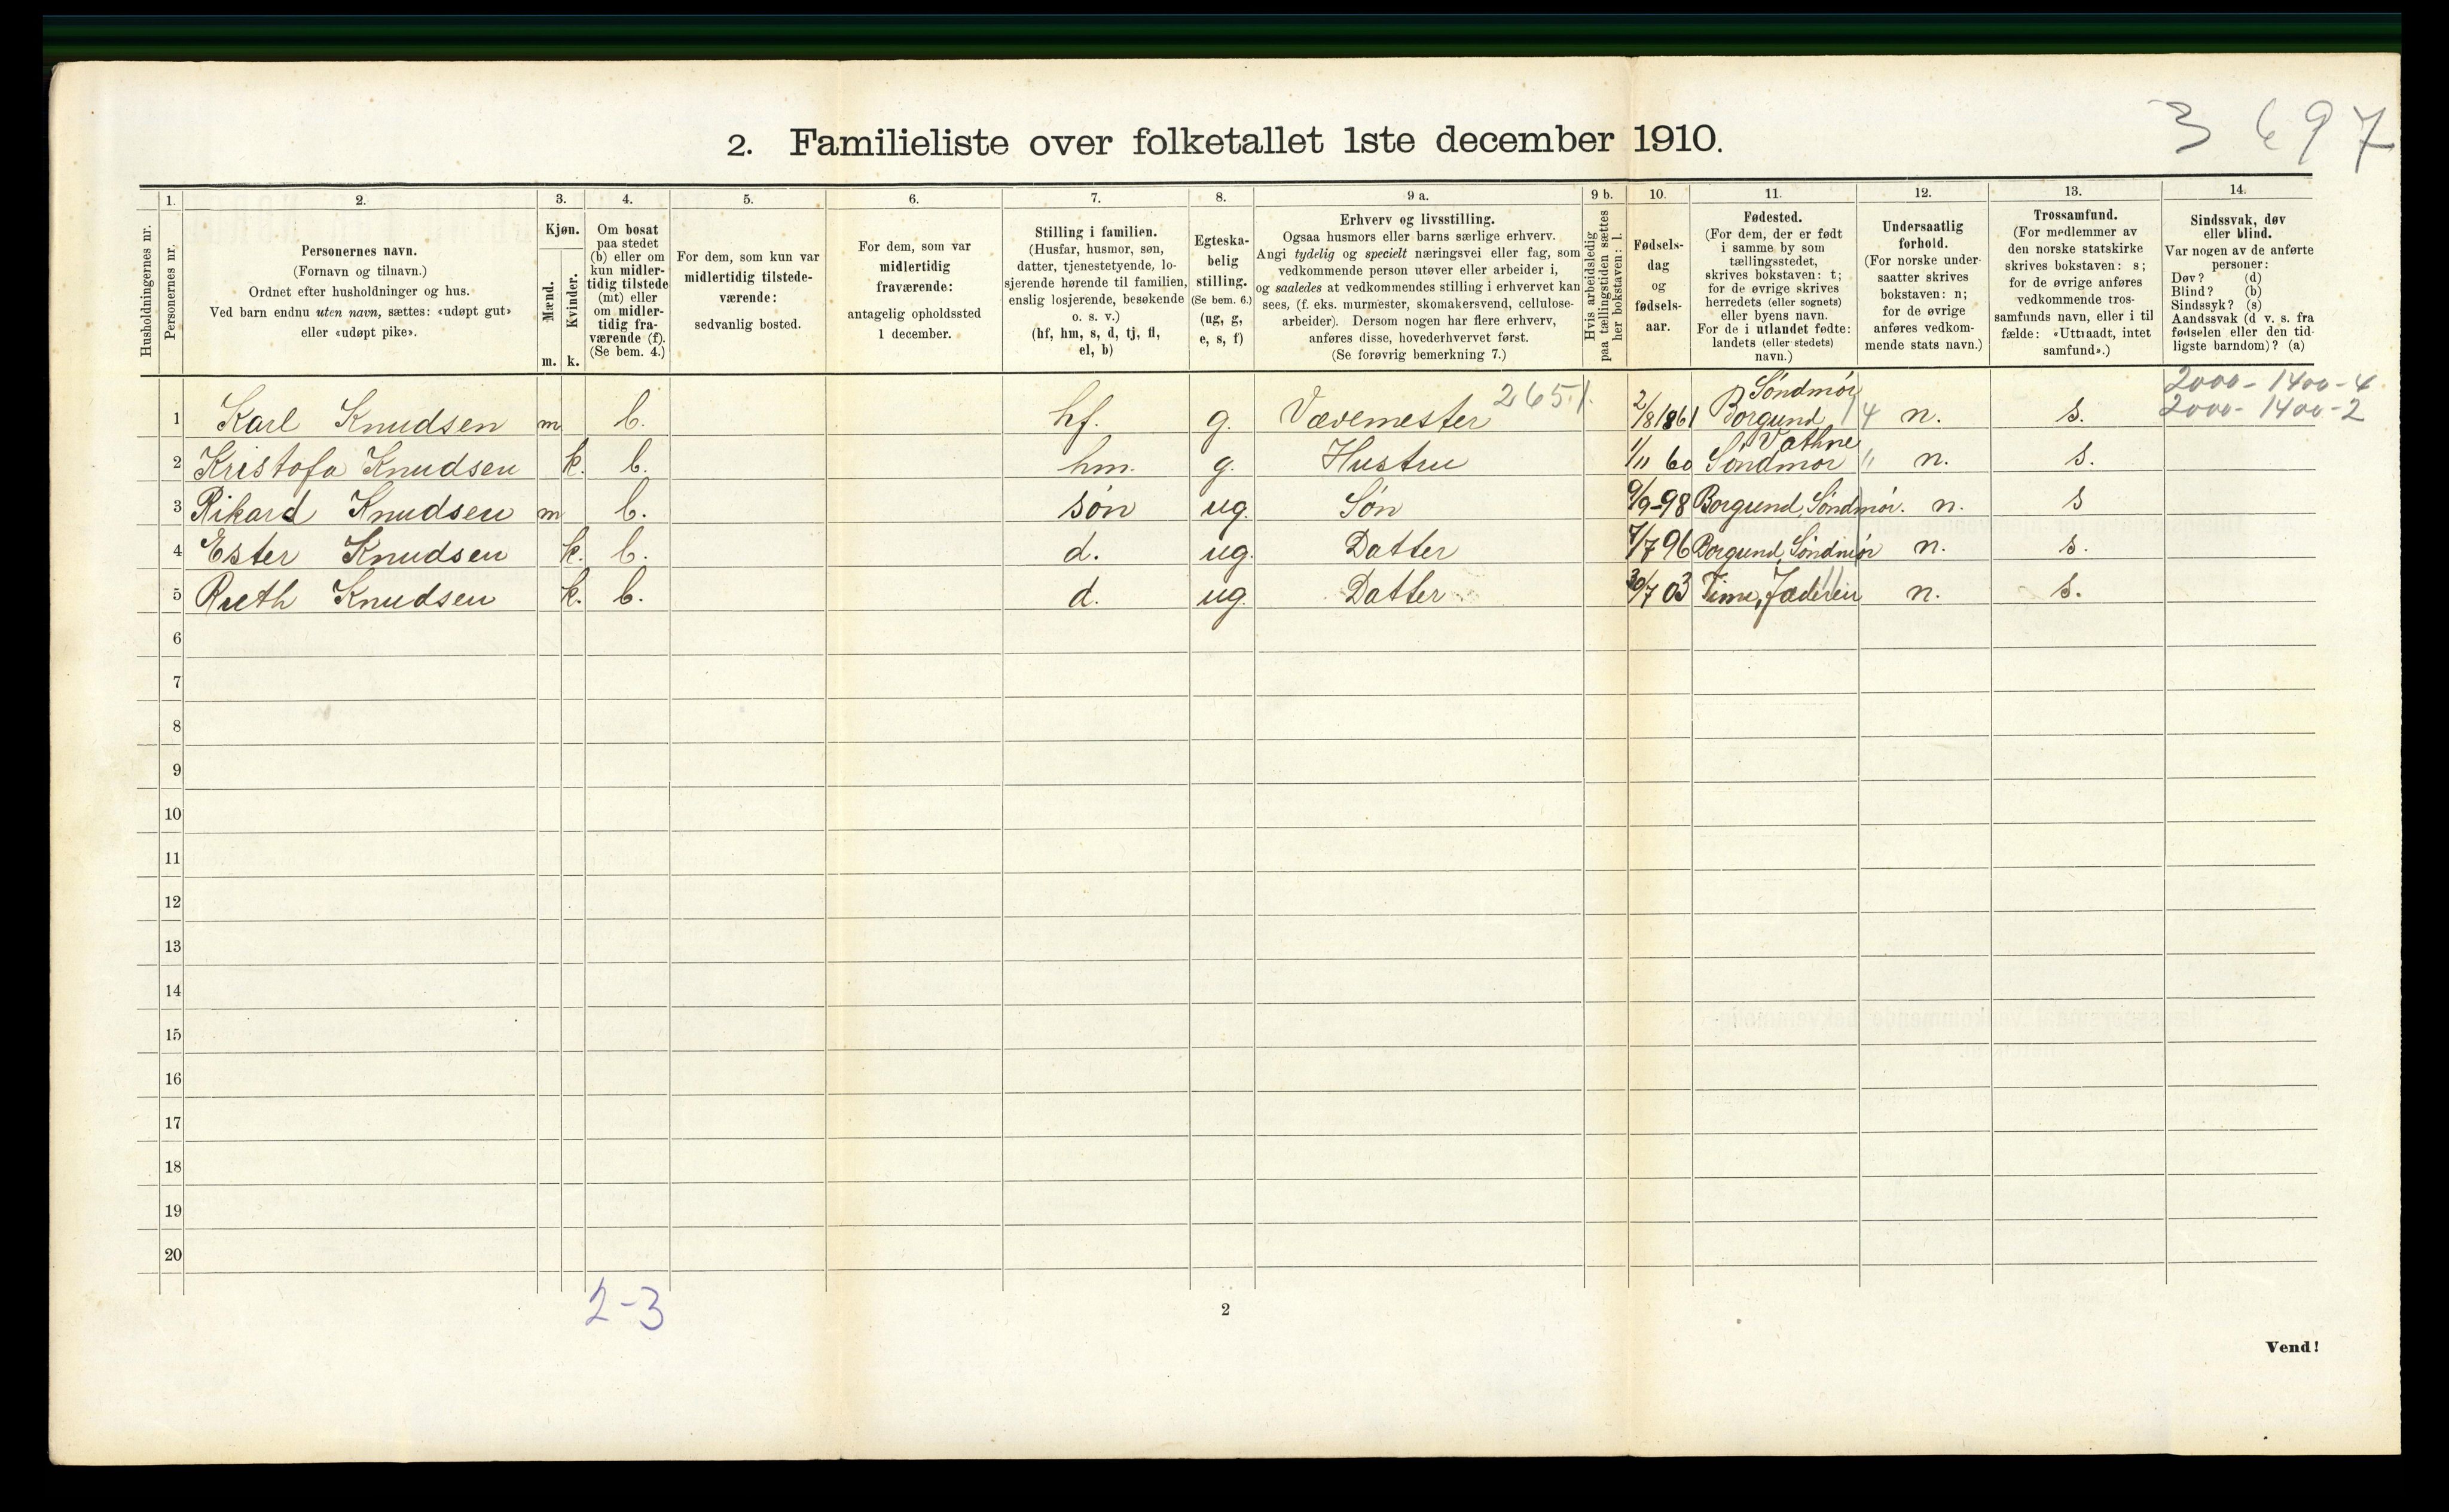 3 697
2. Familieliste over folketallet 1ste december 1910.
Husholdningernes nr.
1. Personernes nr.
2. Personernes navn. (Fornavn og tilnavn.) Ordnet efter husholdninger og hus. Ved barn endnu uten navn, sættes: «udøpt gut» eller «udøpt pike».
3. Kjøn. Mænd. m. Kvinder. k.
4. Om bosat paa stedet (b) eller om kun midlertidig tilstede (mt) eller om midlertidig fraværende (f). (Se bem. 4.)
5. For dem, som kun var midlertidig tilstedeværende: sedvanlig bosted.
6. For dem, som var midlertidig fraværende: antagelig opholdssted 1 december.
7. Stilling i familien. (Husfar, husmor, søn, datter, tjenestetyende, losjerende hørende til familien, enslig losjerende, besøkende o. s. v.) (hf, hm, s, d, tj, fl, el, b)
8. Egteskabelig stilling. (Se bem. 6.) (ug, g, e, s, f)
9 a. Erhverv og livsstilling. Ogsaa husmors eller barns særlige erhverv. Angi tydelig og specielt næringsvei eller fag, som vedkommende person utøver eller arbeider i, og saaledes at vedkommendes stilling i erhvervet kan sees, (f. eks. murmester, skomakersvend, cellulosearbeider). Dersom nogen har flere erhverv, anføres disse, hovederhvervet først. (Se forøvrig bemerkning 7.)
9 b. Hvis arbeidsledig paa tællingstiden sættes her bokstaven: l.
10. Fødselsdag og fødselsaar.
11. Fødested. (For dem, der er født i samme by som tællingsstedet, skrives bokstaven: t; for de øvrige skrives herredets (eller sognets) eller byens navn. For de i utlandet fødte: landets (eller stedets) navn.)
12. Undersaatlig forhold. (For norske undersaatter skrives bokstaven: n; for de øvrige anføres vedkommende stats navn.)
13. Trossamfund. (For medlemmer av den norske statskirke skrives bokstaven: s; for de øvrige anføres vedkommende trossamfunds navn, eller i tilfælde: «Uttraadt, intet samfund».)
14. Sindssvak, døv eller blind. Var nogen av de anførte personer: Døv? (d) Blind? (b) Sindssyk? (s) Aandssvak (d v. s. fra fødselen eller den tidligste barndom)? (a)
2000 - 1400 - 4
2000 - 1400 - 2
1 Karl Knudsen m b. hf. g. Vævemester 265.1. 2/8 1861 Søndmør Borgund 14 n. s.
2 Kristofa Knudsen k. b. hm. g. Hustru 1/11 60 Vathne Søndmør " n. s.
3 Rikard Knudsen m b. søn ug. Søn 9/9-98 Borgund, Søndmør. n. s
4 Ester Knudsen k. b. d. ug. Datter 7/7 96 Borgund, Søndmør n. s.
5 Ruth Knudsen k. b. d. ug. Datter 30/7 03 Time, Jæderen n. s.
6
7
8
9
10
11
12
13
14
15
16
17
18
19
20
2-3
2
Vend!